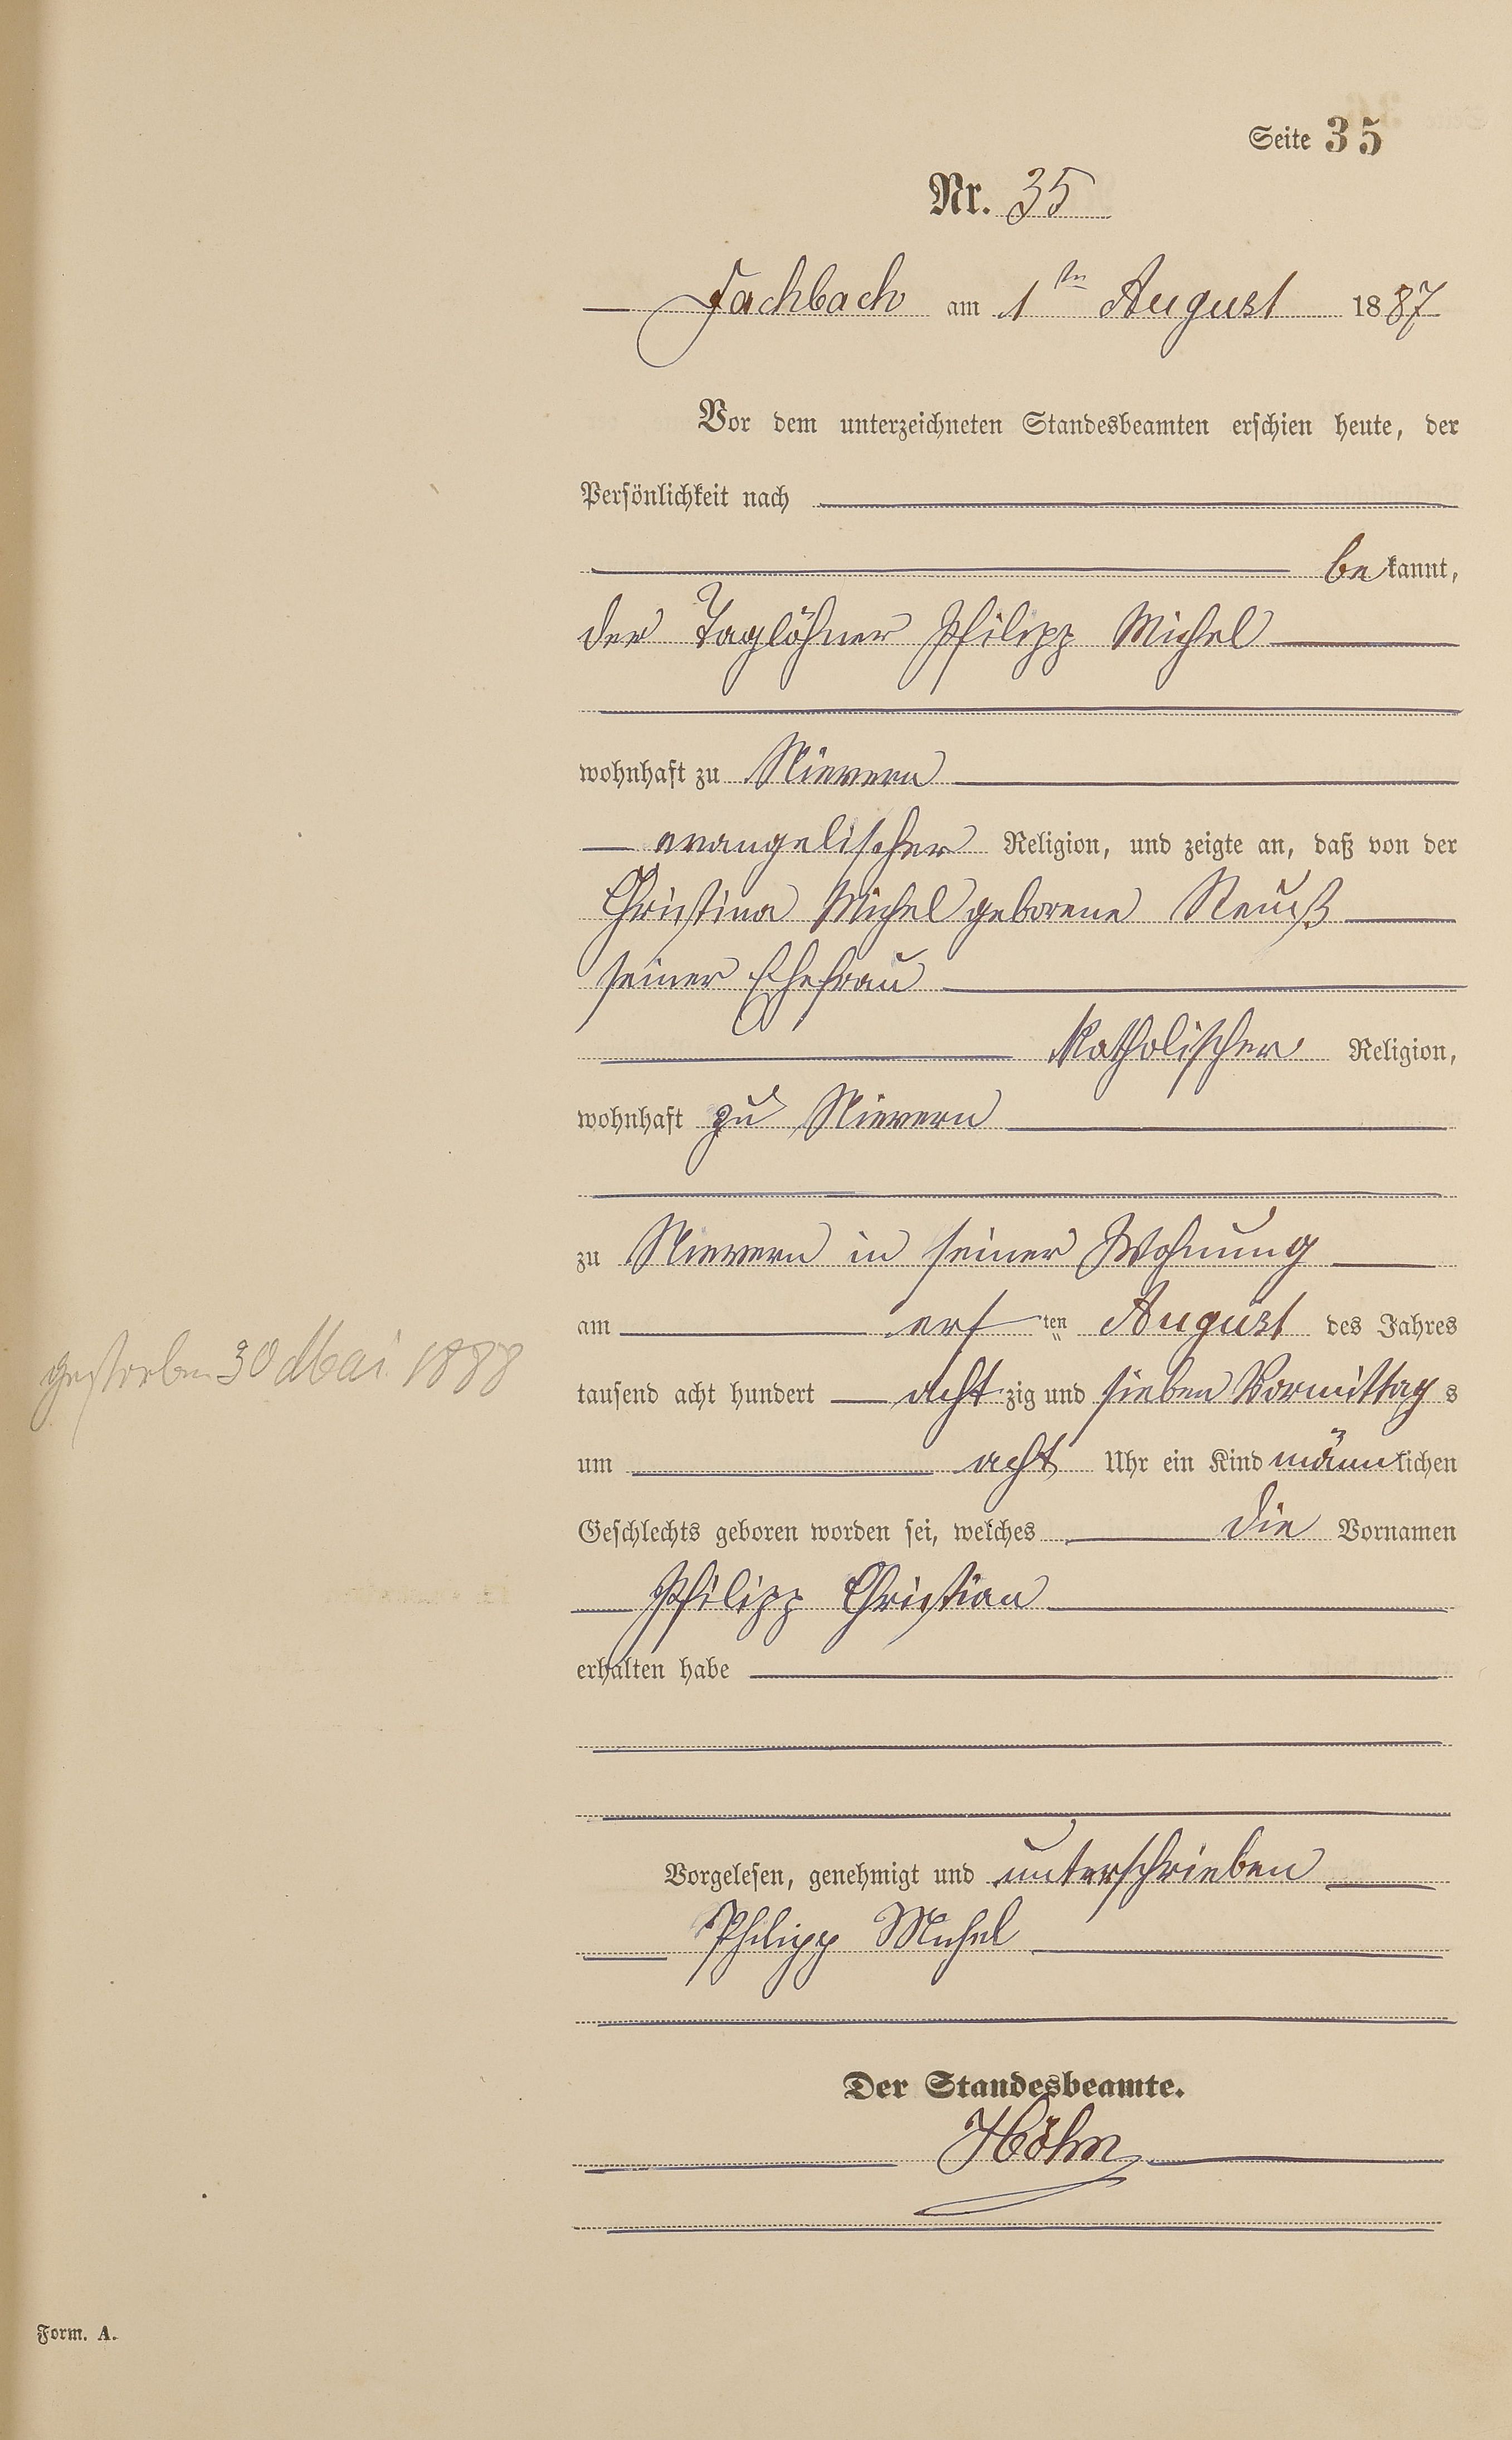 Seite 35
Nr. 35
Fachbach am 1ten August 1887
Vor dem unterzeichneten Standesbeamten erschien heute, der
Persönlichkeit nach
bekannt,
der Taglöhner Philipp Michel
wohnhaft zu Nievern
evangelischer Religion, und zeigte an, daß von der
Christina Michel geborene Neuß
seiner Ehefrau
katholischer Religion,
wohnhaft zu Nievern
zu Nievern in seiner Wohnung
am ersten August des Jahres
tausend acht hundert achtzig und sieben Vormittags
um acht Uhr ein Kind männlichen
gestorben 30 Mai 1888
Geschlechts geboren worden sei, welches die Vornamen
Philipp Christian
erhalten habe
Vorgelesen, genehmigt und unterschrieben
Philipp Michel
Der Standesbeamte.
Höhn
Form. A.